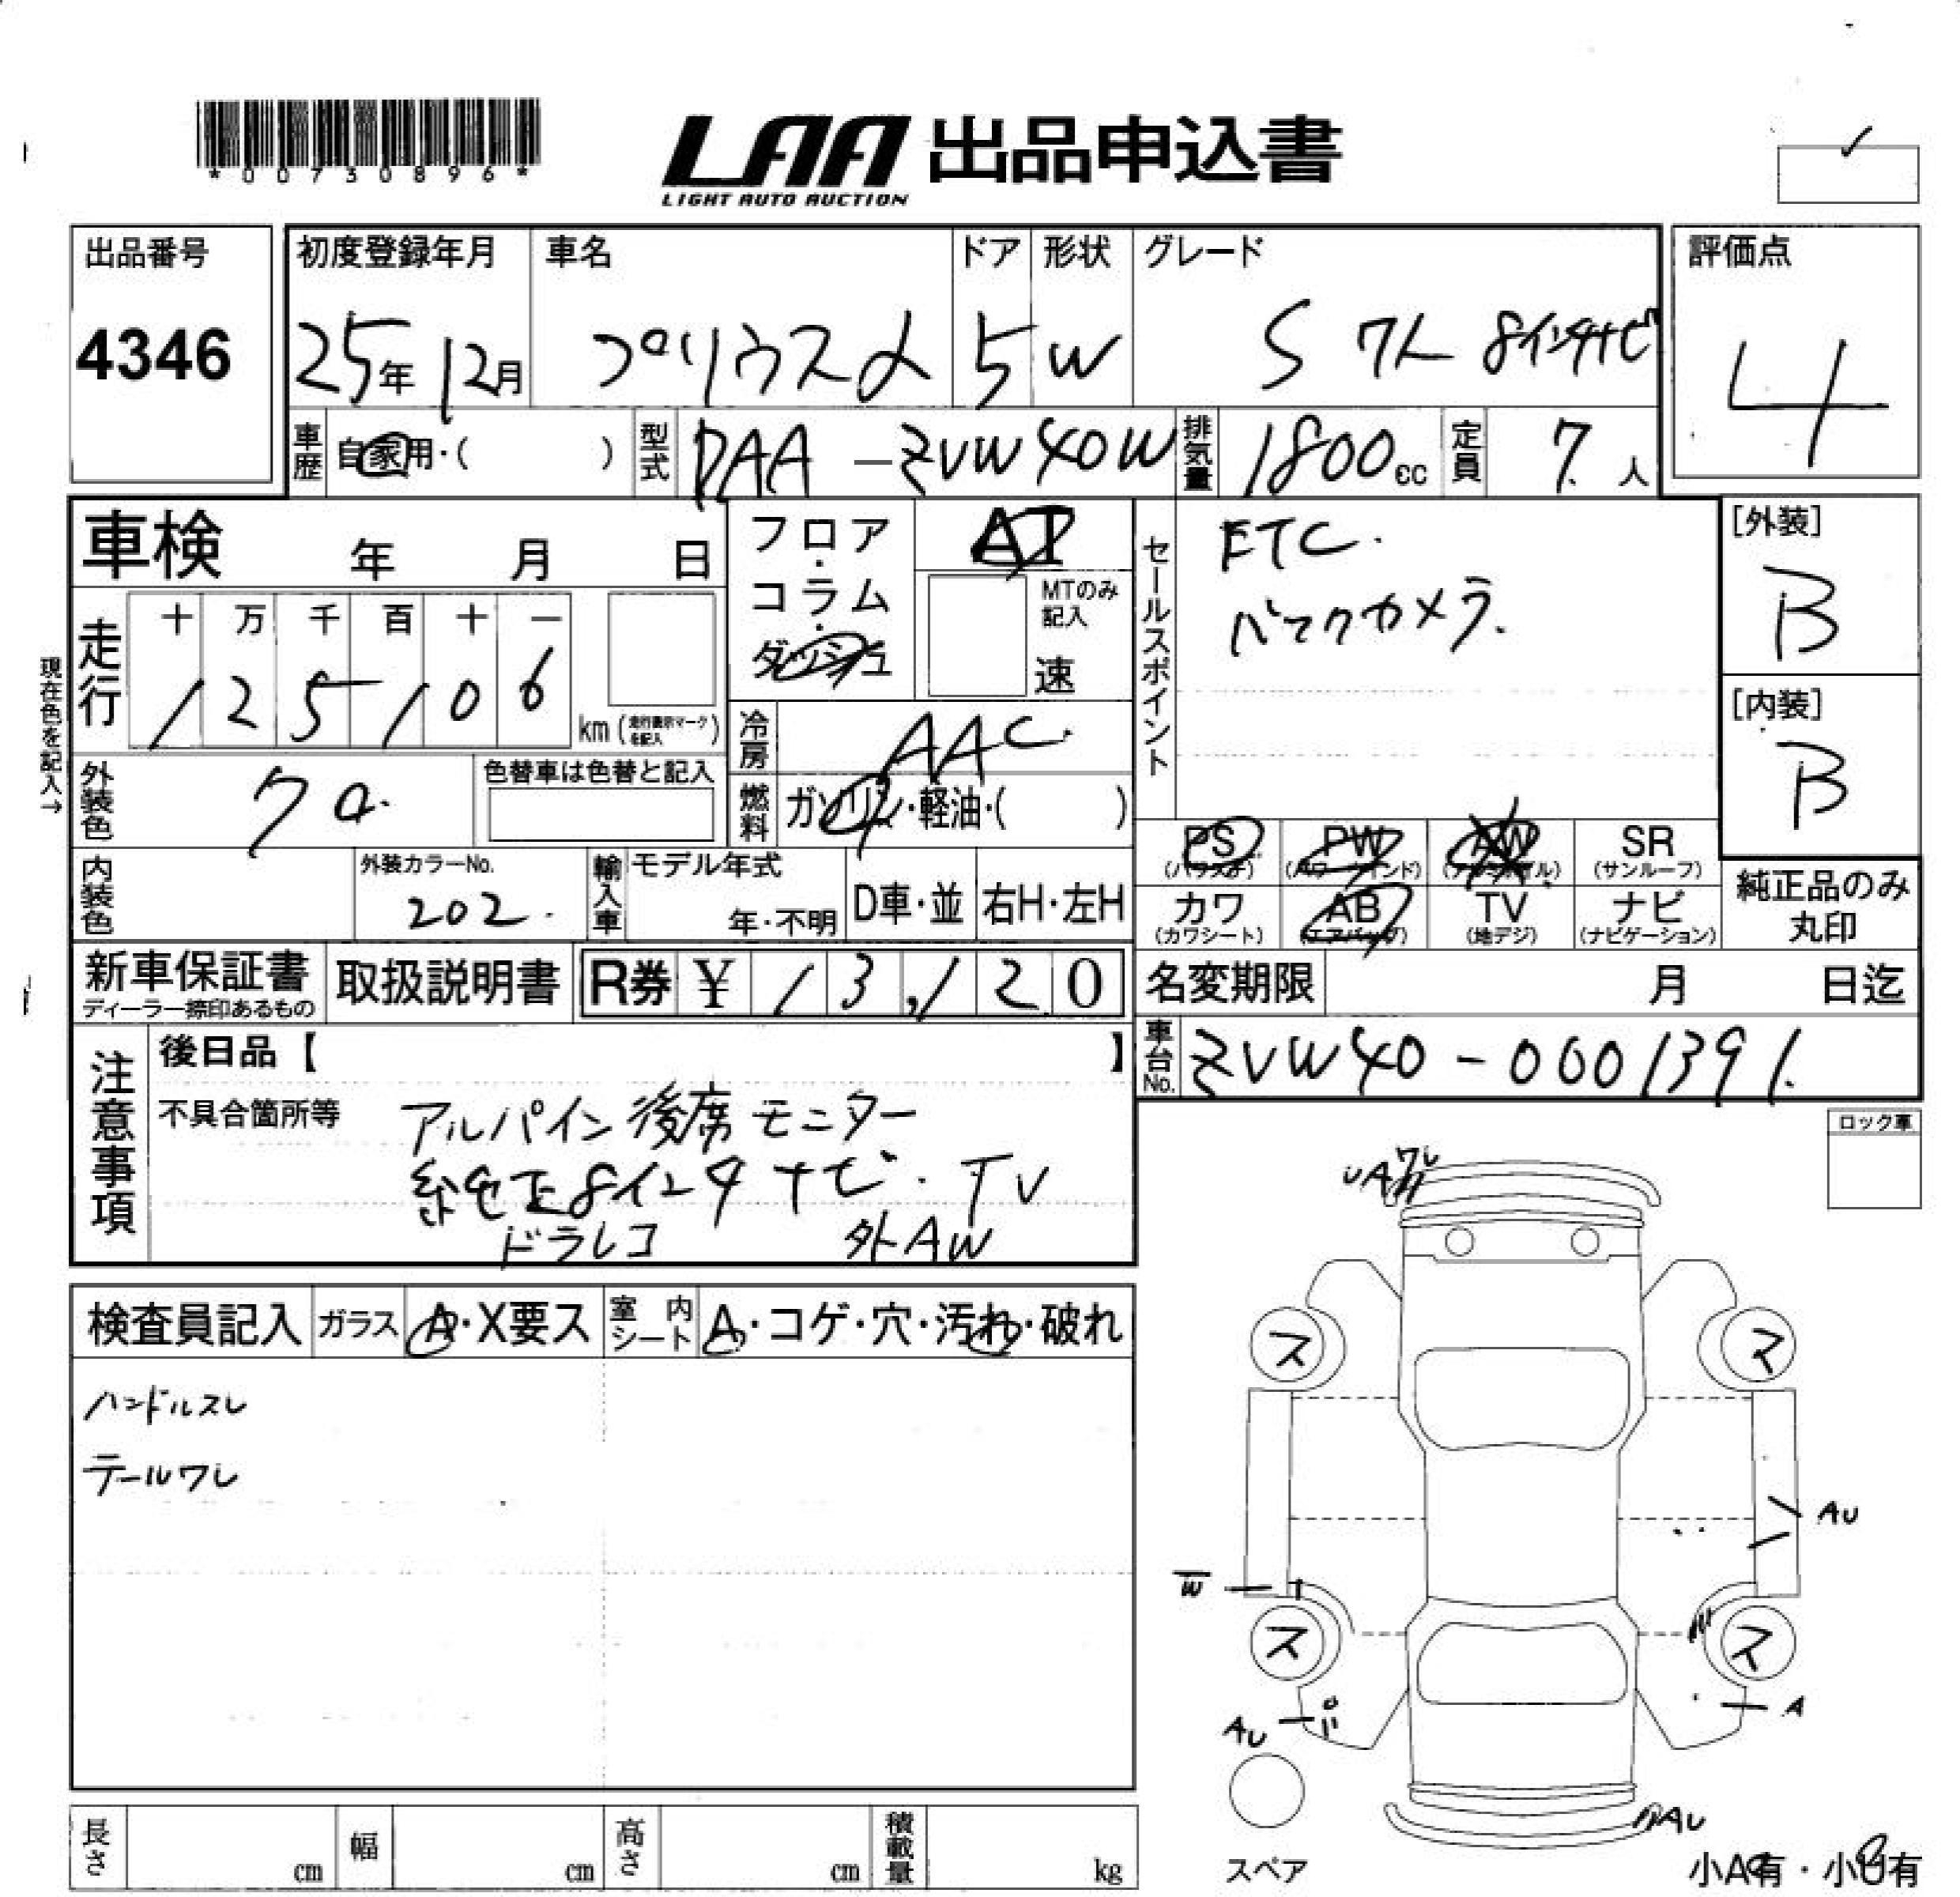 *00730896*
LAA 出品申込書
LIGHT AUTO AUCTION
出品番号
4346
初度登録年月
25年 12月
車名
プリウスα
ドア
5
形状
W
グレード
S 7人 8インチナビ
評価点
4
車歴
自家用・( )
型式
DAA-ZVW40W
排気量
1800cc
定員
7人
車検 年 月 日
フロア・コラム・ダッシュ
AT
MTのみ記入
速
セールスポイント
ETC.
バックカメラ.
[外装]
B
[内装]
B
現在色を記入→
走行
十 万 千 百 十 一
1 2 5 1 0 6
km (走行表示マークを記入)
冷房
AAC
外装色
クロ.
色替車は色替と記入
燃料
ガソリン・軽油・( )
PS PW AW SR
(パワステ) (パワーウインド) (アルミホイル) (サンルーフ)
カワ AB TV ナビ
(カワシート) (エアバッグ) (地デジ) (ナビゲーション)
純正品のみ丸印
内装色
外装カラーNo.
202.
輸入車
モデル年式
年・不明
D車・並
右H・左H
新車保証書
ディーラー捺印あるもの
取扱説明書
R券 ¥ 13,120
名変期限 月 日迄
車台No.
ZVW40-0001391.
注意事項
後日品【 】
不具合箇所等
アルパイン後席モニター
純正8インチナビ・TV
ドラレコ 外AW
ロック車
検査員記入
ガラス
A・X要ス
室内シート
A・コゲ・穴・汚れ・破れ
ハンドルスレ
テールワレ
UAワレ
ス
ス
AU
W
ス
ス
AU
A
AU
スペア
小A有・小U有
長さ cm
幅 cm
高さ cm
積載量 kg